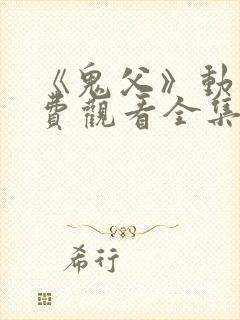 《鬼父》動
費觀看全集
希行